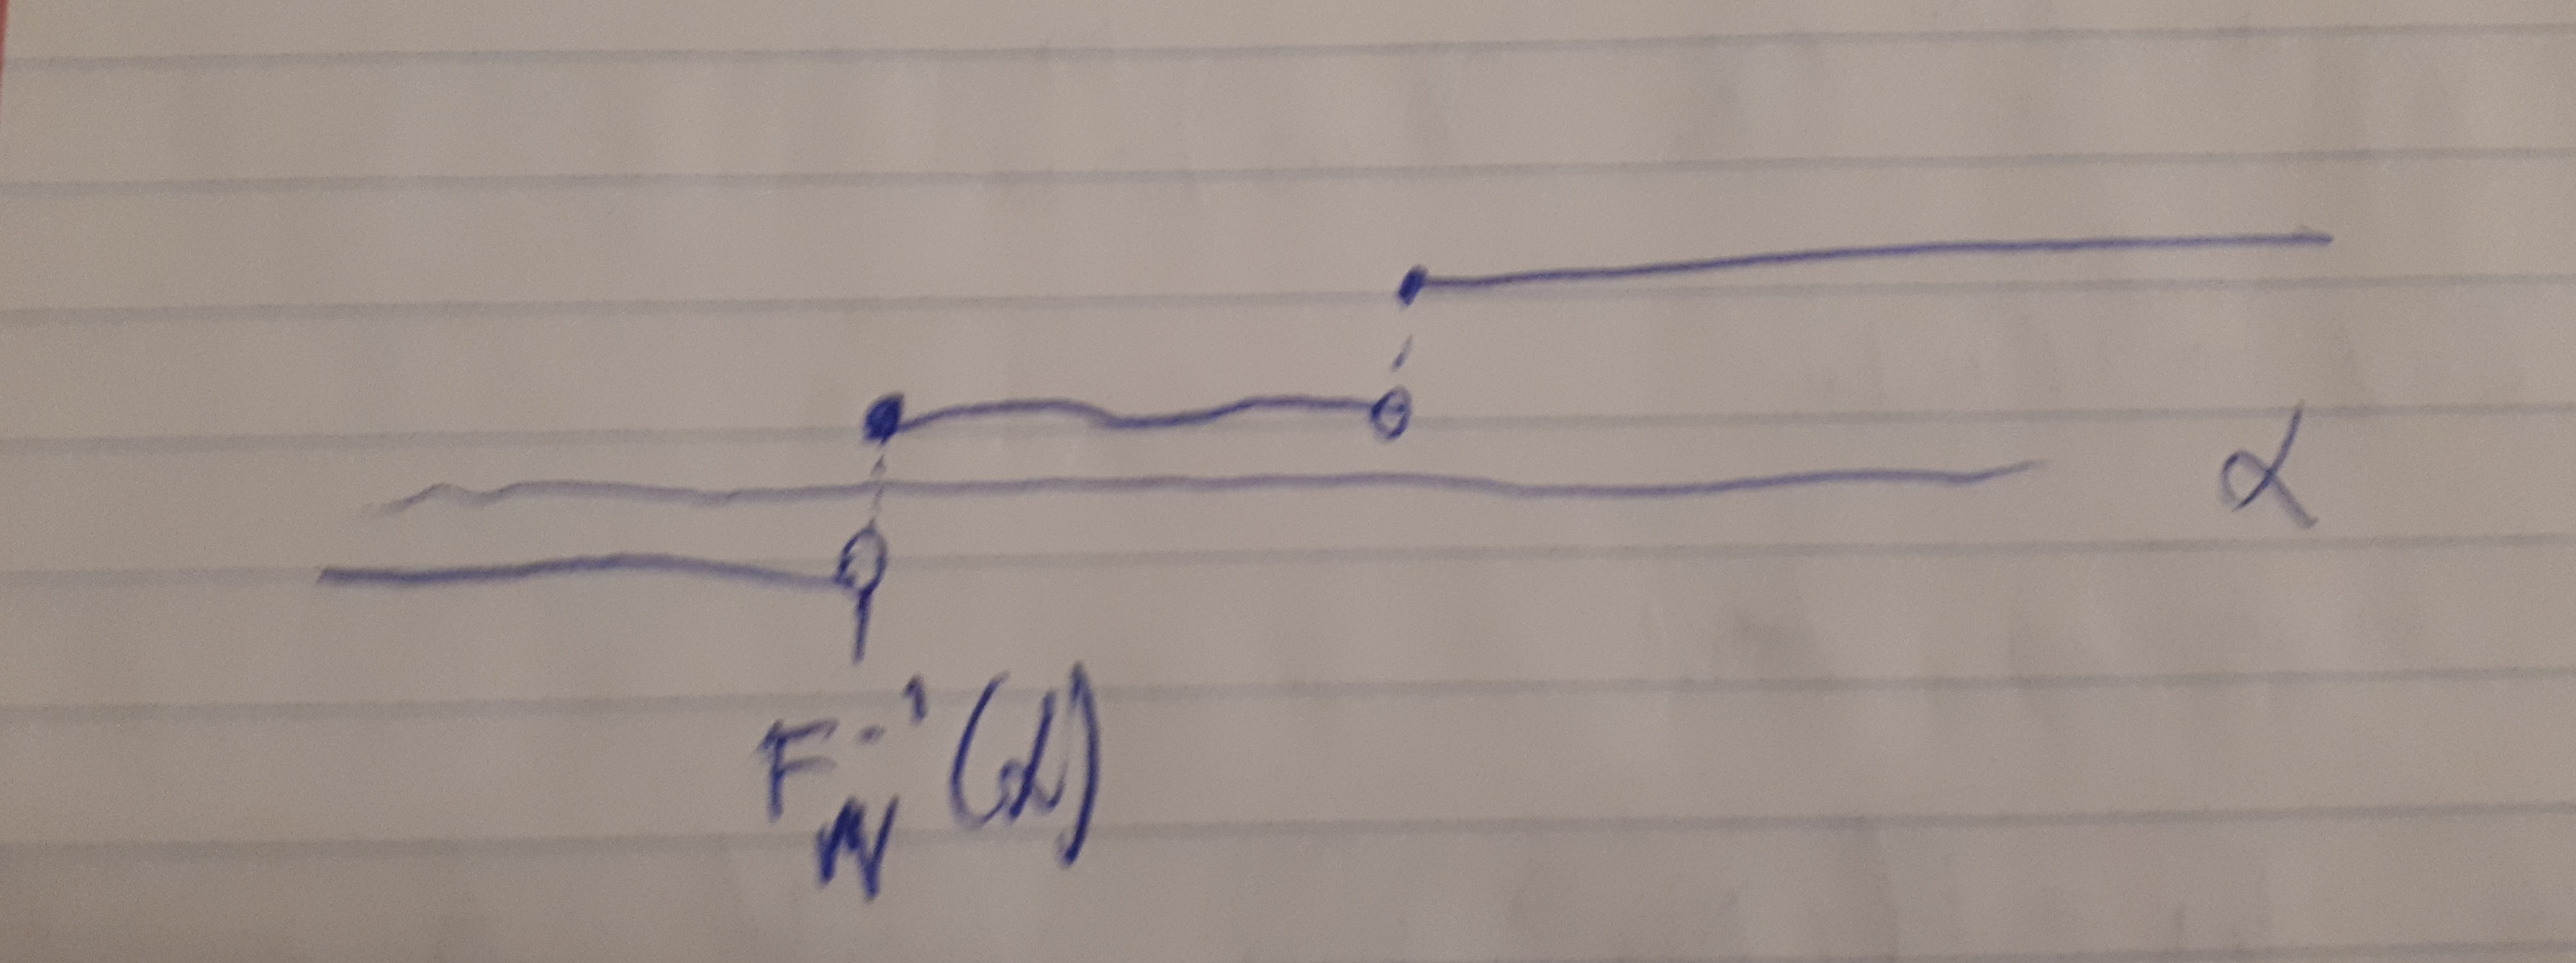 α
F_N^{-1}(α)